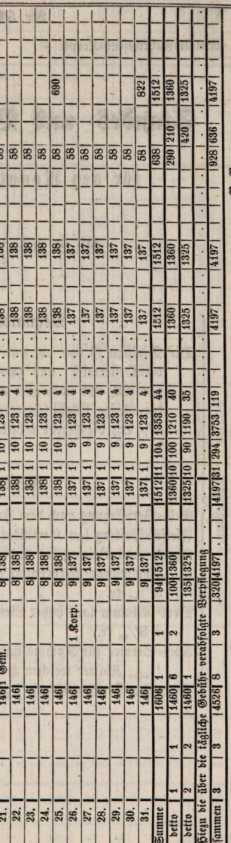 21. 146 1 Gem. 8 138 138 1 10 123 4 138 138 58
22. 146 8 138 138 1 10 123 4 138 138 58
23. 146 8 138 138 1 10 123 4 138 138 58
24. 146 8 138 138 1 10 123 4 138 138 58
25. 146 8 138 138 1 10 123 4 138 138 58 690
26. 146 1 Korp. 9 137 137 1 9 123 4 137 137 58
27. 146 9 137 137 1 9 123 4 137 137 58
28. 146 9 137 137 1 9 123 4 137 137 58
29. 146 9 137 137 1 9 123 4 137 137 58
30. 146 9 137 137 1 9 123 4 137 137 58
31. 146 9 137 137 1 9 123 4 137 137 58 822
Summe 1606 1 1 94 1512 1512 11 104 1353 44 1512 1512 638 1512
detto 1 1 1460 6 2 100 1360 1360 10 100 1210 40 1360 1360 290 210 1360
detto 2 2 1460 1 135 1325 1325 10 90 1190 35 1325 1325 420 1325
Hiezu die über die tägliche Gebühr verabfolgte Verpflegung
sammen 3 3 4526 8 3 329 4197 4197 31 294 3753 119 4197 4197 928 636 4197